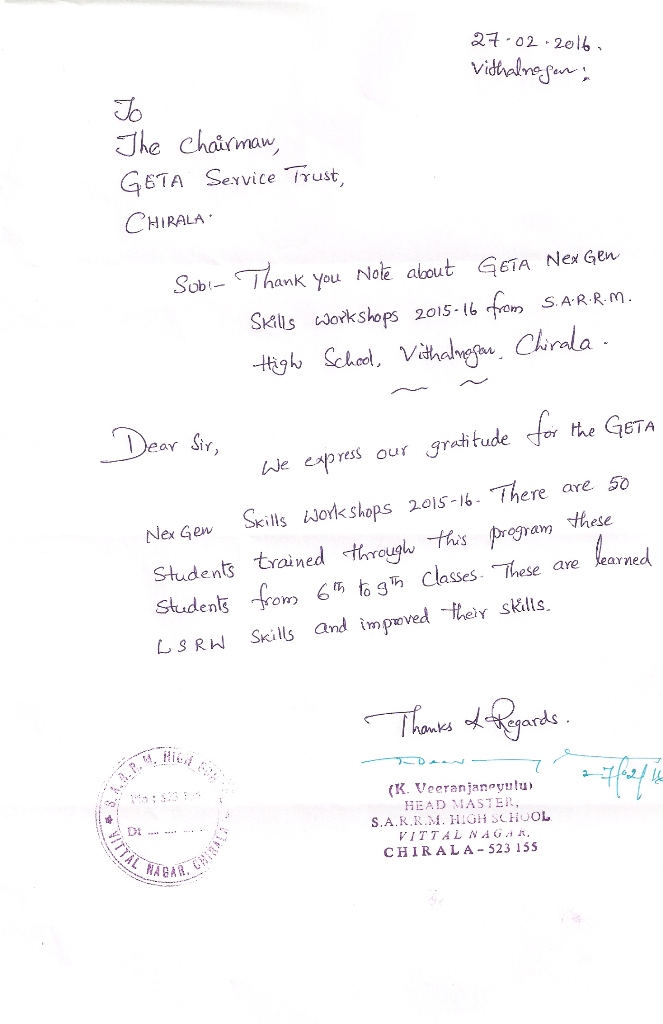 27-02-2016.
Vithalnagar;
To
The Chairman,
GETA Service Trust,
CHIRALA.
Sub:- Thank you Note about GETA NexGen
Skills workshops 2015-16 from S.A.R.R.M.
High School, Vithalnagar, Chirala.
Dear Sir,
We express our gratitude for the GETA
NexGen Skills workshops 2015-16. There are 50
Students trained through this program these
Students from 6th to 9th Classes. These are learned
LSRW Skills and improved their skills.
Thanks & Regards.
27/02/16
(K. Veeranjaneyulu)
HEAD MASTER,
S.A.R.R.M. HIGH SCHOOL
VITTAL NAGAR,
CHIRALA-523 155
S.A.R.R.M. HIGH
Dt ... ... ...
VITTAL NAGAR, CHIRALA